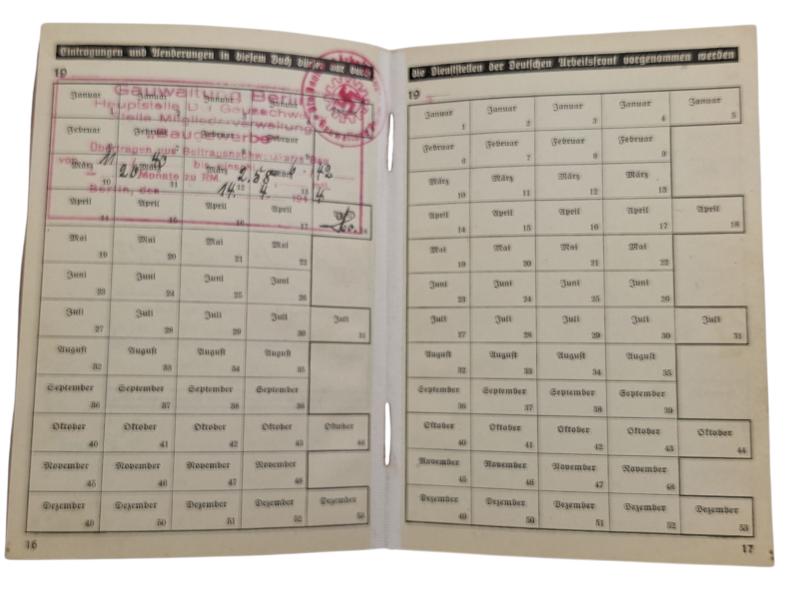 Eintragungen und Aenderungen in diesem Buch dürfen nur durch
19
Gauwaltung Berlin
Hauptstelle
Mitgliederverwaltung
Übertragen aus
Monate zu RM.
Berlin, den
Januar Januar Januar Januar
Februar Februar Februar Februar
März März März
10 11 12 13
April April April April
14 15 16 17
Mai Mai Mai Mai
19 20 21 22
Juni Juni Juni Juni
23 24 25 26
Juli Juli Juli Juli Juli
27 28 29 30 31
August August August August
32 33 34 35
September September September September
36 37 38 39
Oktober Oktober Oktober Oktober Oktober
40 41 42 43 44
November November November November
45 46 47 48
Dezember Dezember Dezember Dezember Dezember
49 50 51 52 53
16
die Dienststellen der Deutschen Arbeitsfront vorgenommen werden
19
Januar Januar Januar Januar Januar
1 2 3 4 5
Februar Februar Februar Februar
6 7 8 9
März März März März
10 11 12 13
April April April April April
14 15 16 17 18
Mai Mai Mai Mai
19 20 21 22
Juni Juni Juni Juni
23 24 25 26
Juli Juli Juli Juli Juli
27 28 29 30 31
August August August August
32 33 34 35
September September September September
36 37 38 39
Oktober Oktober Oktober Oktober Oktober
40 41 42 43 44
November November November November
45 46 47 48
Dezember Dezember Dezember Dezember Dezember
49 50 51 52 53
17